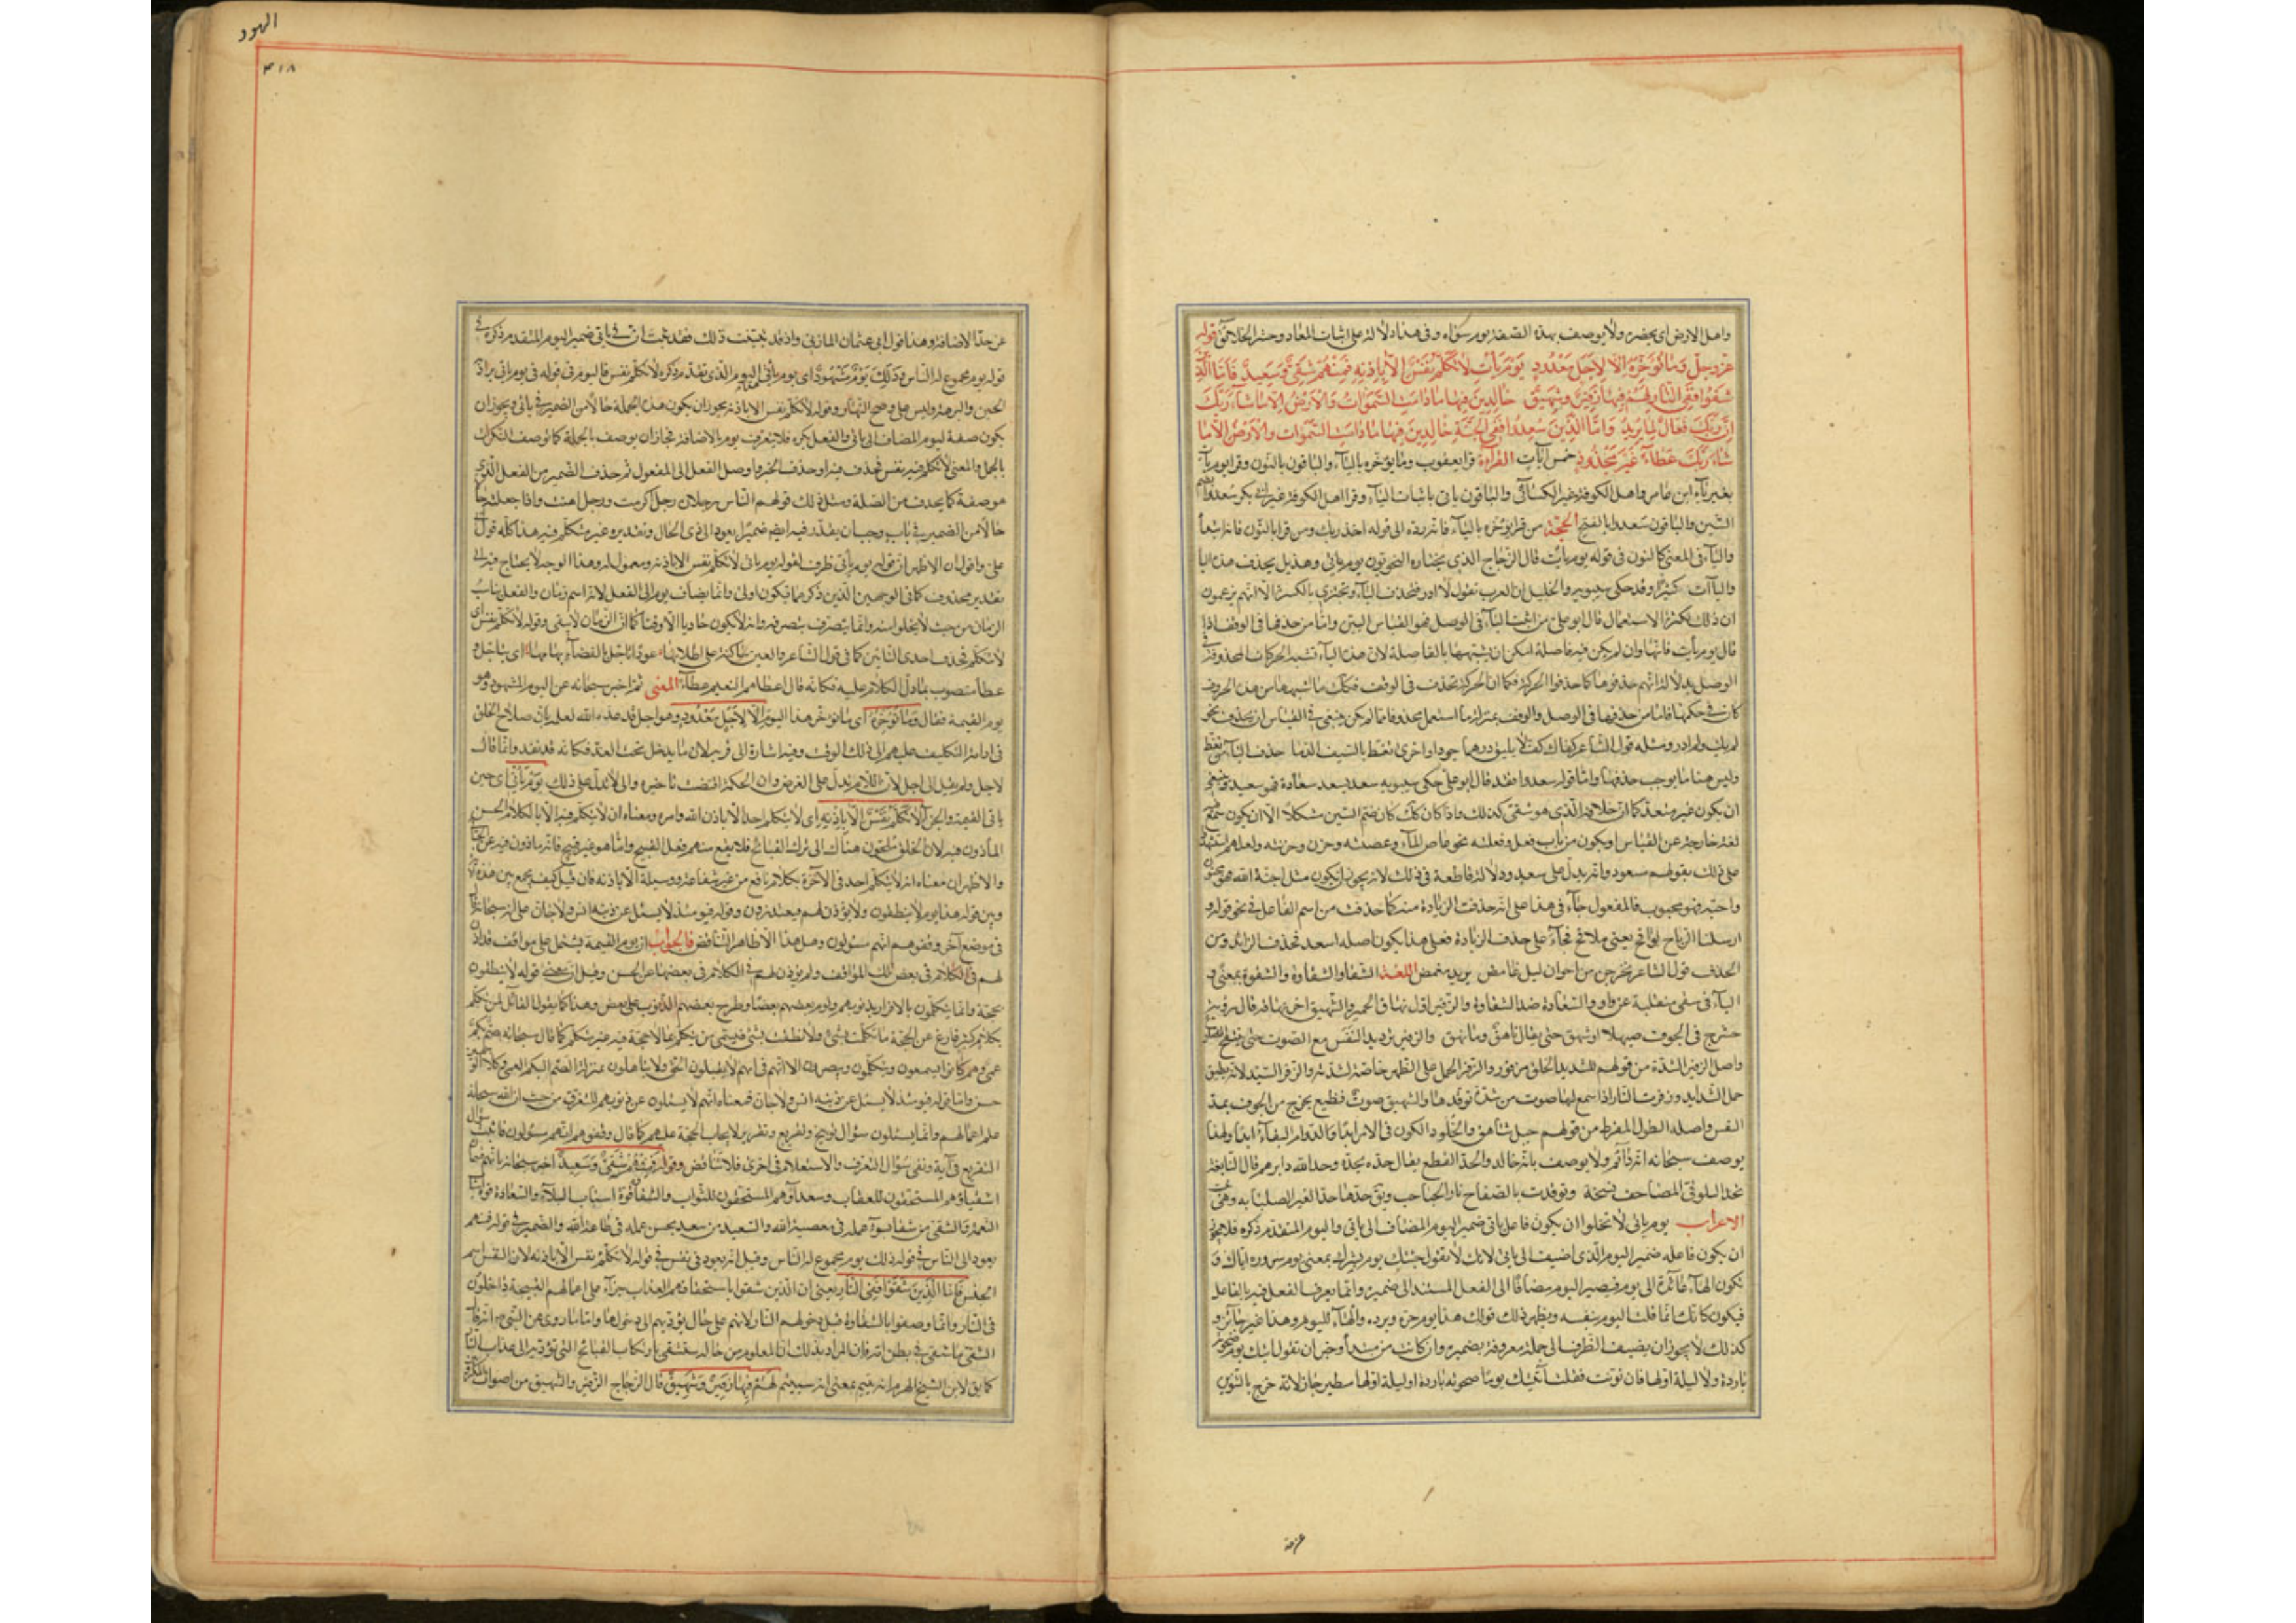 واهل الارض اى يحضره ولا يوصف بهذه الصفة يوم سواه وفى هذا دلالة على اثبات المعاد وحشر الخلائق قوله
عز وجل وَمَا نُؤَخِّرُهُ اِلَّا لِاَجَلٍ مَعْدُودٍ يَوْمَ يَأْتِ لَا تَكَلَّمُ نَفْسٌ اِلَّا بِاِذْنِهِ فَمِنْهُمْ شَقِىٌّ وَسَعِيدٌ فَاَمَّا الَّذِينَ
شَقُوا فَفِى النَّارِ لَهُمْ فِيهَا زَفِيرٌ وَشَهِيقٌ خَالِدِينَ فِيهَا مَا دَامَتِ السَّمٰوَاتُ وَالْاَرْضُ اِلَّا مَا شَاءَ رَبُّكَ
اِنَّ رَبَّكَ فَعَّالٌ لِمَا يُرِيدُ وَاَمَّا الَّذِينَ سُعِدُوا فَفِى الْجَنَّةِ خَالِدِينَ فِيهَا مَا دَامَتِ السَّمٰوَاتُ وَالْاَرْضُ اِلَّا مَا
شَاءَ رَبُّكَ عَطَاءً غَيْرَ مَجْذُوذٍ خمس آيات القراءة قرا يعقوب وما يؤخره بالياء والباقون بالنون وقرا يوم يات
بغير ياء ابن عامر واهل الكوفة غير الكسائى والباقون ياتى باثبات الياء وقرا اهل الكوفة غير ابى بكر سعدوا بضم
السين والباقون سعدوا بالفتح الحجة من قرا يؤخره بالياء فانه رده الى قوله اخذ ربك ومن قرا بالنون فانه ايضا
والياء فى المعنى كالنون فى قوله يوم يات قال الزجاج الذى يختاره النحويون يوم ياتى وهذيل يحذف هذه اليا
والياآت كثيرا وقد حكى سيبويه والخليل ان العرب تقول لا ادر فتحذف الياء وتجتزى بالكسرة الا انهم يزعمون
ان ذلك لكثرة الاستعمال قال ابو على من اثبت الياء فى الوصل فهو القياس البين واما من حذفها فى الوقف اذا
قال يوم يات فانها وان لم يكن فيه فاصلة امكن ان يشبهها بالفاصلة لان هذه الياء تشبه الحركات المحذوفة فى
الوصل بدلالة انهم حذفوها كما حذفوا الحركة فكما ان الحركة تحذف فى الوقف فكذلك ما اشبهها من هذه الحروف
كان فى حكمها فاما من حذفها فى الوصل والوقف بمنزلة ما استعمل محذوفا مما لم يكن ينبغى فى القياس ان يحذف نحو
لم يك ولم ادر ومثله قول الشاعر كفاك كف لا تليق درهما جودا واخرى تعط بالسيف الدما حذف الياء من تعطى
وليس هنا ما يوجب حذفها واما قوله سعدوا فقد قال ابو على حكى سيبويه سعد يسعد سعادة فهو سعيد وينبغى
ان يكون غير متعد كما ان خلافه الذى هو شقى كذلك واذا كان كذلك كان ضم السين مشكلا الا ان يكون سمع
لغة خارجة عن القياس او يكون من باب فعل وفعلته نحو غاض الماء وغضته وحزن وحزنته ولعلهم استشهدوا
على ذلك بقولهم مسعود وانه يدل على سعد ولا دلالة قاطعة فى ذلك لانه يجوز ان يكون مثل اجنه الله فهو مجنون
واحبه فهو محبوب فالمفعول جاء فى هذا على انه حذفت الزيادة منه كما حذفت من اسم الفاعل فى نحو قوله و
ارسلنا الرياح لواقح يعنى ملاقح فجاء على حذف الزيادة فعلى هذا يكون اصله اسعد فحذف الزائد ومن
الحذف قول الشاعر يخرجن من اجواز ليل غامض يريد مغمض اللغة الشقاء والشقاوة والشقوة بمعنى و
الياء فى شقى منقلبة عن واو والسعادة ضد الشقاوة والزفير اول نهاق الحمير والشهيق اخر نهاقه قال رؤبة
حشرج فى الجوف صهيلا او شهق حتى يقال ناهق وما نهق والزفير ترديد النفس مع الصوت حتى تنتفخ الضلوع
واصل الزفير الشدة من قولهم للشديد الخلق مزفور والزفر الحمل على الظهر خاصة لشدته والزفر السيد لانه يطيق
حمل الشدايد وزفرت النار اذا سمع لها صوت من شدة توقدها والشهيق صوت فظيع يخرج من الجوف بمد
النفس واصله الطول المفرط من قولهم جبل شاهق والخلود الكون فى الامر ابدا والدوام البقاء ابدا ولهذا
يوصف سبحانه انه دائم ولا يوصف بانه خالد والجذ القطع يقال جذه يجذه وجذ الله دابرهم قال النابغة
تجذ السلوقى المضاعف نسجه وتوقدن بالصفاح نار الحباحب
الاعراب يوم ياتى لا تخلوا ان يكون فاعل ياتى ضمير اليوم المضاف الى ياتى واليوم المتقدم ذكره فلا يجوز
ان يكون فاعله ضمير اليوم الذى اضيف الى ياتى لانك لا تقول جئتك يوم يسرك بمعنى يوم سروره اياك و
تكون الهاء عائدة الى يوم فيصير اليوم مضافا الى الفعل المسند الى ضميره وانما يعرف الفعل فيه بالفاعل
فيكون كانك انما قلت اليوم بنفسه ونظير ذلك قولك هذا يوم حره وبرده والهاء لليوم وهذا غير جائز و
كذلك لا يجوز ان يضيف الظرف الى جملة معروفة بضميره وان كانت من مبتدأ وخبر ان تقول اتيك يوم ضحوته
باردة ولا ليلة اولها فان نونت فقلت آتيك يوما ضحوته باردة او ليلة اولها مطير جاز لانه خرج بالتنوين
عرفة
الهود
۴۱۸
عن حد الاضافة وهذا قول ابى عثمان المازنى واذ قد تبينت ذلك فقد ثبت ان فى ياتى ضمير اليوم المتقدم ذكره فى
قوله يوم مجموع له الناس وذلك يَوْمٌ مَشْهُودٌ اى يوم ياتى اليوم الذى تقدم ذكره لا تكلم نفس فاليوم فى قوله فى يوم ياتى يراد به
الحين والبرهة وليس على وضح النهار وقوله لا تكلم نفس الا باذنه يجوز ان يكون هذه الجملة حالا من الضمير فى ياتى ويجوز ان
يكون صفة ليوم المضاف الى ياتى والفعل نكرة فلا يتعرف يوم بالاضافة فجاز ان يوصف بالجملة كما توصف النكرات
بالجمل والمعنى لا تكلم فيه نفس فحذف فيه او حذف الحرف واوصل الفعل الى المفعول ثم حذف الضمير من الفعل الذى
هو صفة كما يحذف من الصلة ومثل ذلك قولهم الناس رجلان رجل اكرمت ورجل اهنت واذا جعلته
حالا من الضمير فى ياتى وجب ان يقدر فيه ايضا ضميرا يعود الى ذى الحال وتقديره غير متكلم فيه هذا كله قول ابى
على واقول ان الاظهر ان قوله يوم ياتى ظرف لقوله لا تكلم نفس الا باذنه ومعمول له وهذا الوجه لا يحتاج فيه الى
تقدير محذوف كما فى الوجهين الذين ذكرهما فيكون اولى وانما يضاف يوم الى الفعل لانه اسم زمان والفعل يناسب
الزمان من حيث لا يخلوا منه وانما يتصرف بتصرفه وانه لا يكون حادثا الا وقتا كما ان الزمان لا يبقى وقوله لا تكلم نفس اى
لا تتكلم فحذف احدى التائين كما فى قول الشاعر والعين ساكنة على اطلائها عوذا تاجل بالفضاء بهامها اى تتاجل و
عطاء منصوب بما دل الكلام عليه فكانه قال اعطاهم النعيم عطاء المعنى ثم اخبر سبحانه عن اليوم المشهود وهو
يوم القيمة فقال وَمَا نُؤَخِّرُهُ اى ما نؤخر هذا اليوم اِلَّا لِاَجَلٍ مَعْدُودٍ وهو اجل قد عده الله لعلمه بان صلاح الخلق
فى ادامة التكليف عليهم الى ذلك الوقت وفيه اشارة الى قربه لان ما يدخل تحت العد فكانه قد نفد وانما قال
لاجل ولم يقل الى اجل لان اللام يدل على الغرض وان الحكمة اقتضت تاخيره والى لا تدل على ذلك يَوْمَ يَأْتِى اى حين
ياتى القيمة والجزاء لَا تَكَلَّمُ نَفْسٌ اِلَّا بِاِذْنِهِ اى لا يتكلم احد الا باذن الله وامره ومعناه ان لا يتكلم فيه الا بالكلام الحسن
الماذون فيه لان الخلق ملجئون هناك الى ترك القبائح فلا يقع منهم فعل القبيح واما ما هو غير قبيح فانه ماذون فيه عن الجبائى
والاظهر ان معناه انه لا يتكلم احد فى الآخرة بكلام نافع من غير شفاعة ووسيلة الا باذنه فان قيل كيف يجمع بين هذه الآية
وبين قوله هذا يوم لا ينطقون ولا يؤذن لهم فيعتذرون وقوله فيومئذ لا يسئل عن ذنبه انس ولا جان على انه سبحانه قال
فى موضع آخر وقفوهم انهم مسئولون وهل هذا الا ظاهر التناقض فالجواب ان يوم القيمة يشتمل على مواقف قد اذن
لهم فى الكلام فى بعض تلك المواقف ولم يؤذن لهم فى الكلام فى بعضها عن الحسن وقيل ان معنى قوله لا ينطقون
بحجة وانما يتكلمون بالاقرار بذنوبهم ولوم بعضهم بعضا وطرح بعضهم الذنوب على بعض وهذا كما يقول القائل لمن تكلم
بكلام كثير فارغ عن الحجة ما تكلمت بشئ ولا نطقت بشئ فسمى من يتكلم بما لا حجة فيه غير متكلم كما قال سبحانه صم بكم
عمى وهم كانوا يسمعون ويتكلمون ويبصرون الا انهم فى انهم لا يقبلون الحق ولا يتاملون بمنزلة الصم البكم العمى وكلا الوجهين
حسن واما قوله فيومئذ لا يسئل عن ذنبه انس ولا جان فمعناه انهم لا يسئلون عن ذنوبهم للتعرف من حيث ان الله سبحانه
علم اعمالهم وانما يسئلون سؤال توبيخ وتقريع وتقرير لايجاب الحجة عليهم كما قال وقفوهم انهم مسئولون فاثبت سؤال
التقريع فى آية ونفى سؤال التعرف والاستعلام فى اخرى فلا تناقض وقوله فَمِنْهُمْ شَقِىٌّ وَسَعِيدٌ اخبر سبحانه بانهم قسمان
اشقياء وهم المستحقون للعقاب وسعداء وهم المستحقون للثواب والشقاء قوة اسباب البلاء والسعادة قوة اسباب
النعمة والشقى من شقى بسوء عمله فى معصية الله والسعيد من سعد بحسن عمله فى طاعة الله والضمير فى قوله فمنهم
يعود الى الناس فى قوله ذلك يوم مجموع له الناس وقيل انه يعود فى نفس فى قوله لا تكلم نفس الا باذنه لان النفس اسم
الجنس فَاَمَّا الَّذِينَ شَقُوا فَفِى النَّارِ يعنى ان الذين شقوا باستحقاقهم العذاب جزاء على اعمالهم القبيحة داخلون
فى النار وانما وصفوا بالشقاوة قبل دخولهم النار لانهم على حال يؤديهم الى دخولها واما ما روى عن النبى انه قال
الشقى من شقى فى بطن امه فان المراد بذلك ان المعلوم من حاله سيشقى بارتكاب القبائح التى تؤديه الى عذاب النار
كما يق لابن الشيخ الهرم انه يتيم بمعنى انه سييتم لَهُمْ فِيهَا زَفِيرٌ وَشَهِيقٌ قال الزجاج الزفير والشهيق من اصوات المكروبين